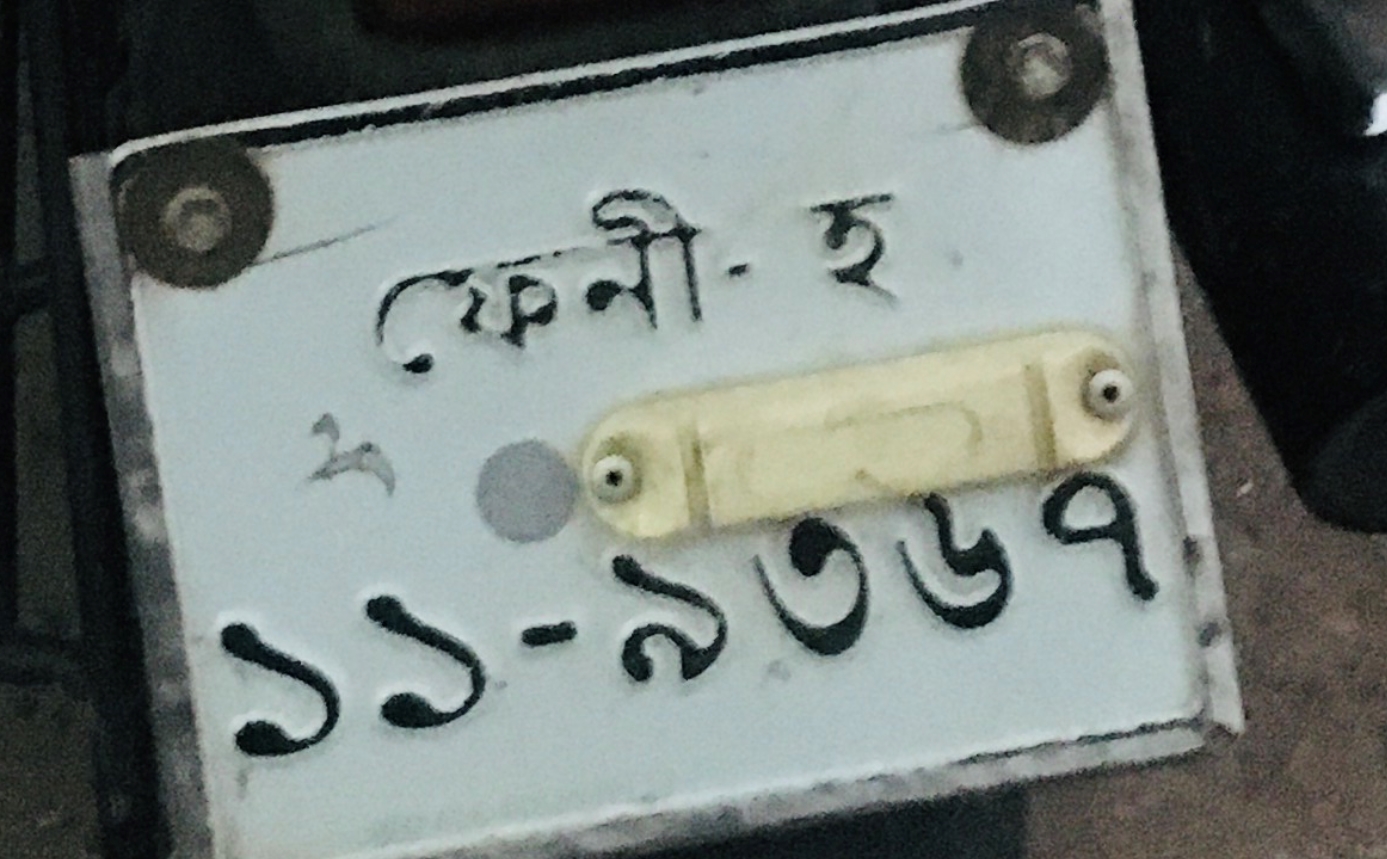 ফেনী- হ
১১-৯৩৬৭